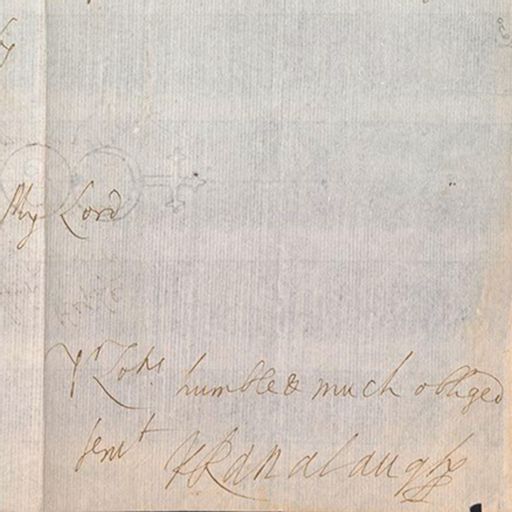 My Lord
Yr Lops humble & much obliged
servt KRanalaugh